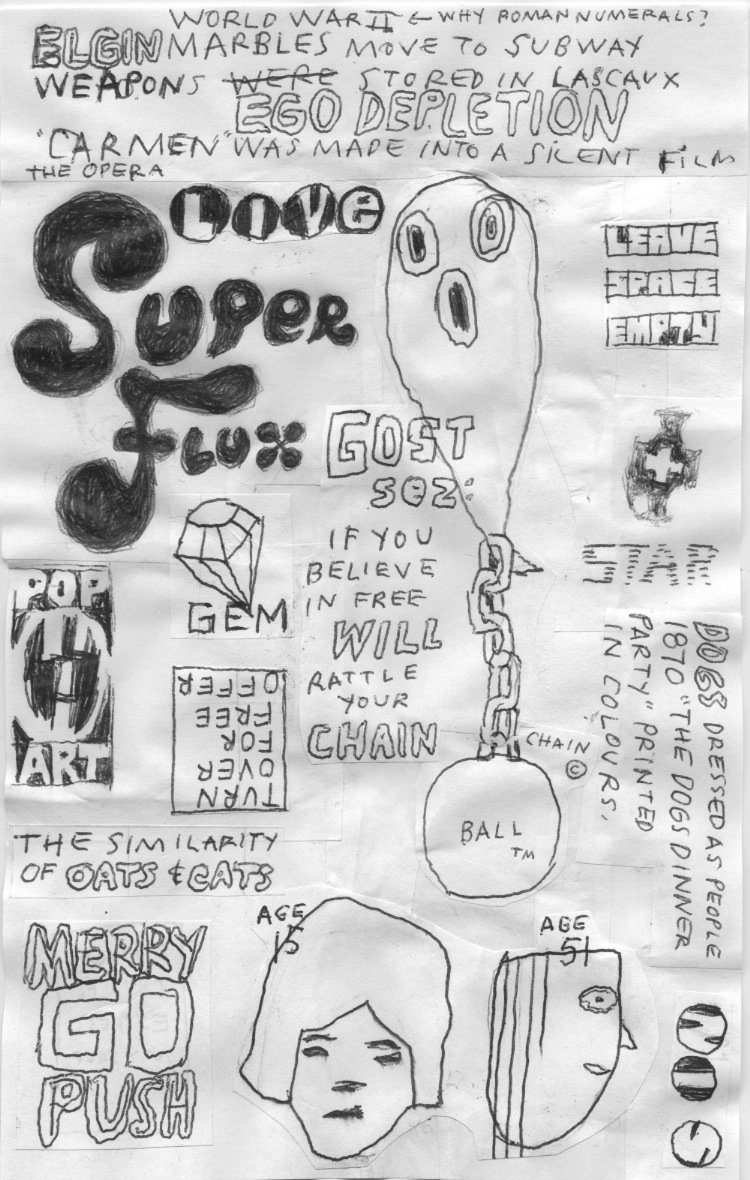 WORLD WAR II ← WHY ROMAN NUMERALS?
ELGIN MARBLES MOVE TO SUBWAY
WEAPONS WERE STORED IN LASCAUX
EGO DEPLETION
"CARMEN" WAS MADE INTO A SILENT FILM
THE OPERA
LIVE
SUPER
FLUX
LEAVE
SPACE
EMPTY
GOST
SEZ:
IF YOU
BELIEVE
IN FREE
WILL
RATTLE
YOUR
CHAIN
GEM
POP
ART
TURN
OVER
FOR
FREE
OFFER
STAR
DOGS DRESSED AS PEOPLE
1870 "THE DOGS DINNER
PARTY" PRINTED
IN COLOURS.
CHAIN
©
BALL
TM
THE SIMILARITY
OF OATS & CATS
MERRY
GO
PUSH
AGE
15
AGE
51